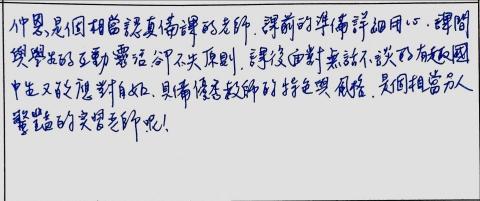 仲恩是個相當認真備課的老師，課前的準備詳細用心，課間
與學生的互動靈活卻不失原則，課後面對無話不談的有趣國
中生又能應對自如，具備優秀教師的特色與風格，是個相當另人
驚豔的實習老師呢！